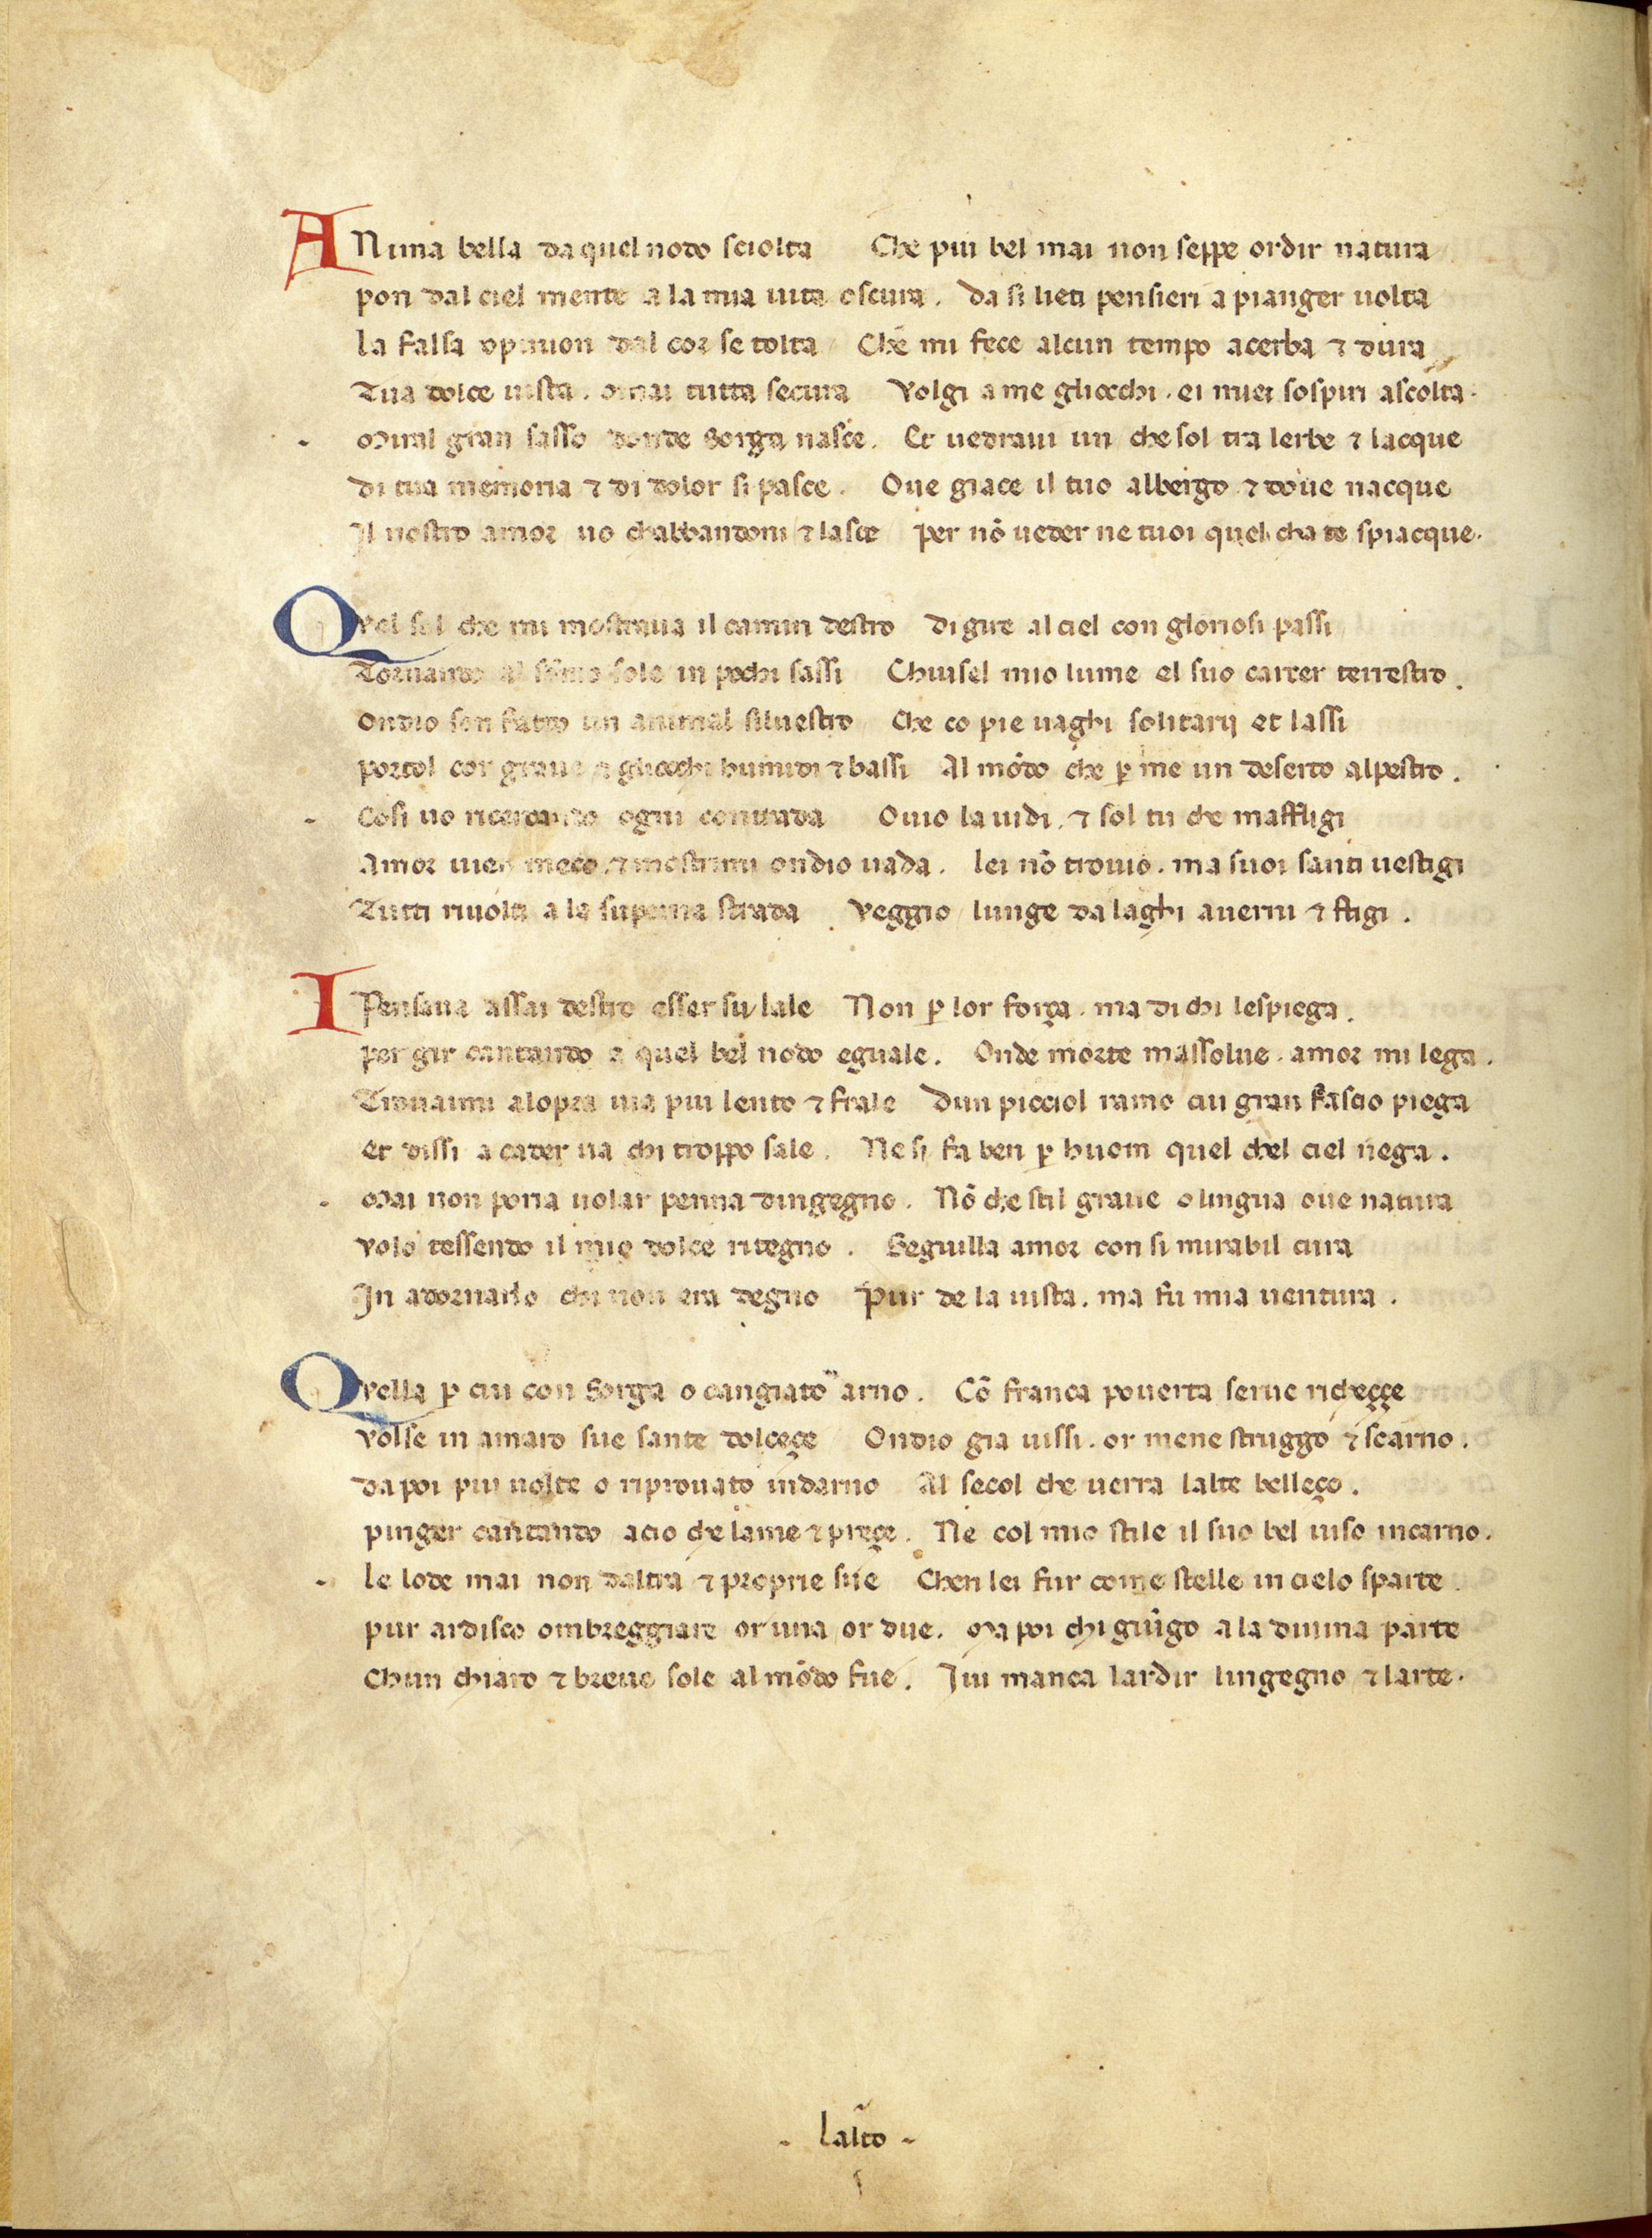 ANima bella da quel nodo sciolta Che piu bel mai non seppe ordir natura
pon dal ciel mente a la mia uita oscura. da si lieti pensieri a pianger uolta
la falsa opinion dal cor se tolta Che mi fece alcun tempo acerba ⁊ dura
Tua dolce uista. omai tutta secura Volgi a me gliocchi. ei miei sospiri ascolta.
Miral gran sasso donde Sorga nasce. Et uedraui un che sol tra lerbe ⁊ lacque
di tua memoria ⁊ di dolor si pasce. Oue giace il tuo albergo ⁊ doue nacque
Il nostro amor uo chabbandoni ⁊ lasce per nō ueder ne tuoi quel cha te spiacque.
QVel sol che mi mostraua il camin destro di gire al ciel con gloriosi passi
Tornando al sōmo sole in pochi sassi Chiusel mio lume el suo carcer terrestro.
Ondio son fatto un animal siluestro Che co pie uaghi solitarij et lassi
portol cor graue ⁊ gliocchi humidi ⁊ bassi Al mōdo che ꝑ me un deserto alpestro.
Cosi uo ricercando ogni contrada Ouio la uidi. ⁊ sol tu che maffligi
Amor uien meco. ⁊ mostrimi ondio uada. lei nō trouio. ma suoi santi uestigi
Tutti riuolti a la superna strada Veggio lunge da laghi auerni ⁊ stigi.
I Pensaua assai destro esser su lale Non ꝑ lor força. ma di chi lespiega.
per gir cantando a quel bel nodo eguale. Onde morte massolue. amor mi lega.
Trouaimi alopra uia piu lento ⁊ frale Dun picciol ramo cui gran fascio piega
Et dissi a cader ua chi troppo sale. Ne si fa ben ꝑ huom quel chel ciel nega.
Mai non poria uolar penna dingegno. Nō che stil graue o lingua oue natura
Volo tessendo il mio dolce ritegno. Seguilla amor con si mirabil cura
In adornarlo chi non era degno Pur de la uista. ma fu mia uentura.
QVella ꝑ cui con Sorga o cangiato arno. Cō franca pouerta serue richeççe
Volse in amaro sue sante dolceçe Ondio gia uissi. or mene struggo ⁊ scarno.
da poi piu uolte o riprouato indarno Al secol che uerra lalte belleçe.
pinger cantando acio che lame ⁊ preçe. Ne col mio stile il suo bel uiso incarno.
le lode mai non daltra ⁊ proprie sue Chen lei fur come stelle in cielo sparte.
pur ardisco ombreggiare or una or due. Ma poi chi giūgo a la diuina parte
Chun chiaro ⁊ breue sole al mōdo fue. Iui manca lardir lingegno ⁊ larte.
- lalto -